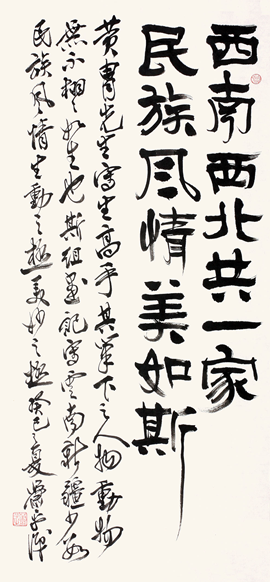 西南西北共一家
民族风情美如斯
黄胄先生写生高手其笔下之人物動物
無不栩栩如生也斯組画写雲南新疆少数
民族风情生動之極美妙之極癸巳之夏